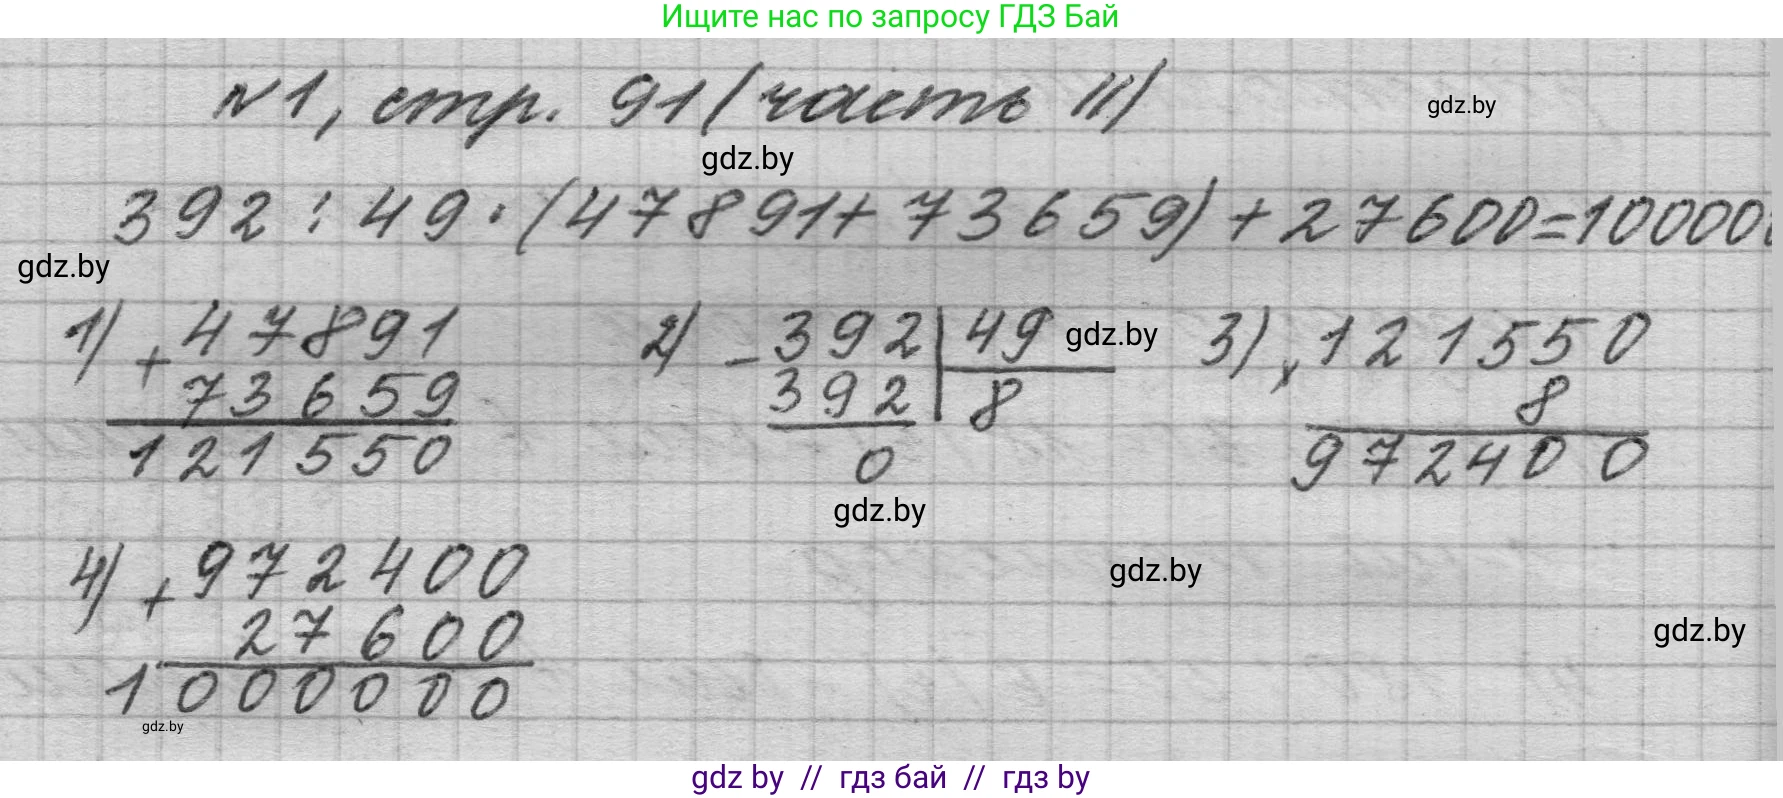 Ищите нас по запросу ГДЗ Бай
№1, стр. 91 (часть II)
gdz.by
gdz.by
392 : 49 · (47891 + 73659) + 27600 = 100000
gdz.by
1) + 47891
73659
121550
2) - 392 | 49
392 8
0
gdz.by
3) x 121550
8
972400
gdz.by
4) + 972400
27600
1000000
gdz.by
gdz.by
gdz.by
gdz by // гдз бай // гдз by